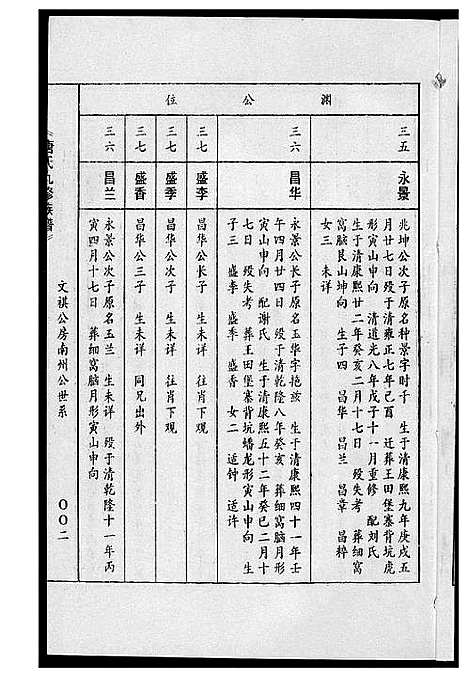 渊公位
三五
永景
兆坤公次子原名种景字时子 生于清康熙九年庚戌五
月廿七日殁于清雍正七年己酉 迁葬王田堡寨背坑虎
形寅山申向 清道光八年戊子十一月重修 配刘氏
生于清康熙廿二年癸亥二月十七日 殁失考 葬细窝
窝脑艮山坤向 生子四 昌华 昌兰 昌章 昌粹
女三 未详
三六
昌华
永景公长子原名玉华字艳该 生于清康熙四十一年壬
午四月廿四日 殁于清乾隆八年癸亥 葬细窝脑月形
寅山申向 配谢氏 生于清康熙五十二年癸巳二月十
七日 殁失考 葬王田堡寨背坑蟠龙形寅山申向 生
子三 盛李 盛季 盛香 女二 适钟 适许
三七
盛李
昌华公长子 生未详 往肖下观
三七
盛季
昌华公次子 生未详 往肖下观
三七
盛香
昌华公三子 生未详 同兄出外
三六
昌兰
永景公次子原名玉兰 生未详 殁于清乾隆十一年丙
寅四月十七日 葬细窝脑月形寅山申向
氏九修族谱
文祺公房南州公世系
〇〇二